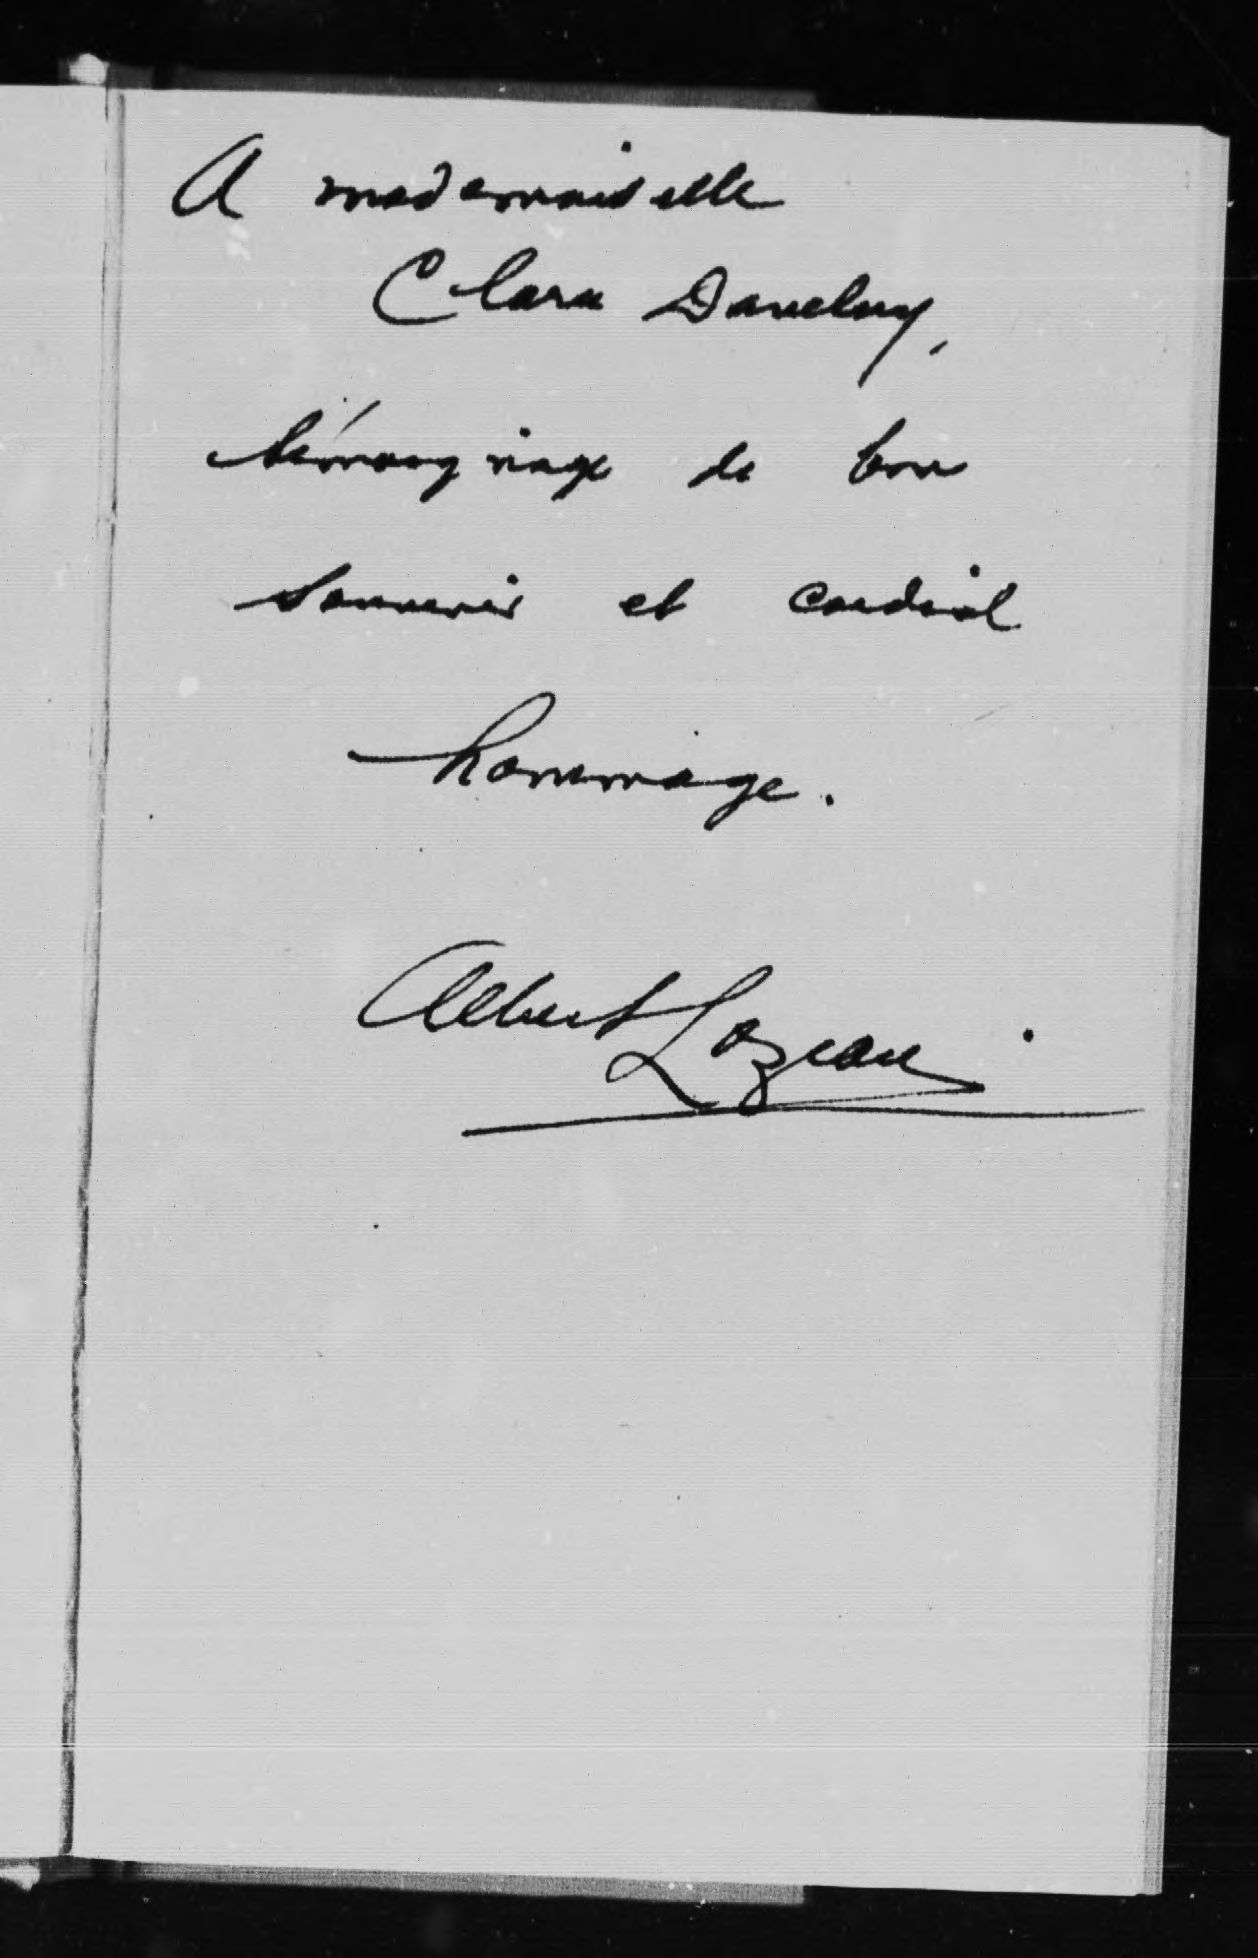 A mademoiselle
Clara Daveluy,
témoignage de bon
souvenir et cordial
hommage.
Albert Lozeau